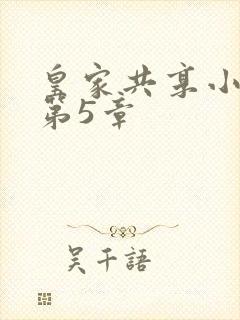 皇家共享小
第5章
吴千語